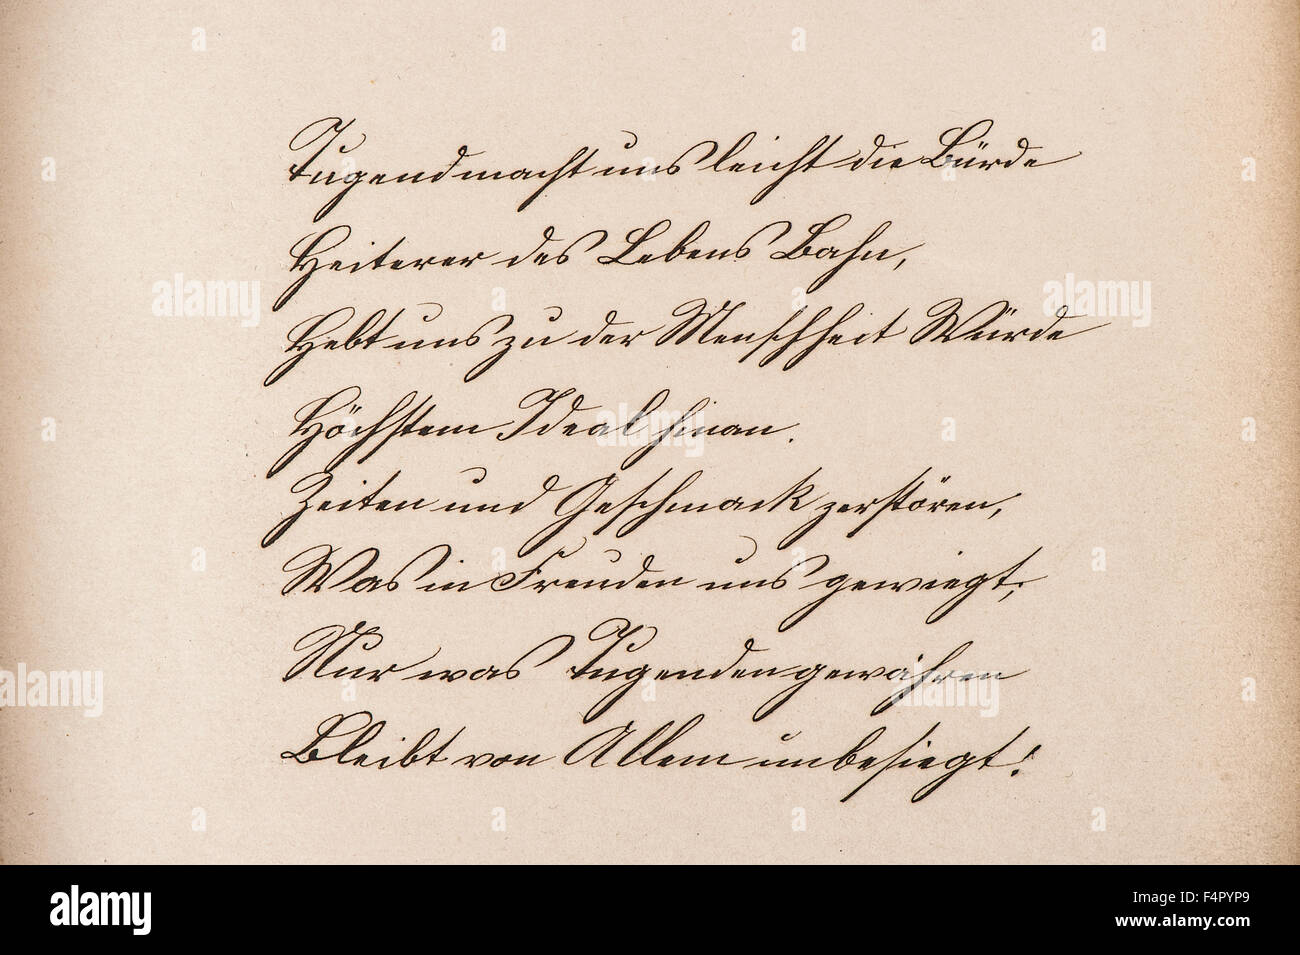 Tugend macht uns leicht die Bürde
Heiterer des Lebens Bahn,
Hebt uns zu der Menschheit Würde
Höchstem Ideal hinan.
Zeiten und Geschmack zerstören,
Was in Freuden uns gewiegt;
Nur was Tugenden gewähren
Bleibt von Allem unbesiegt!
alamy
Image ID: F4RYP9
www.alamy.com